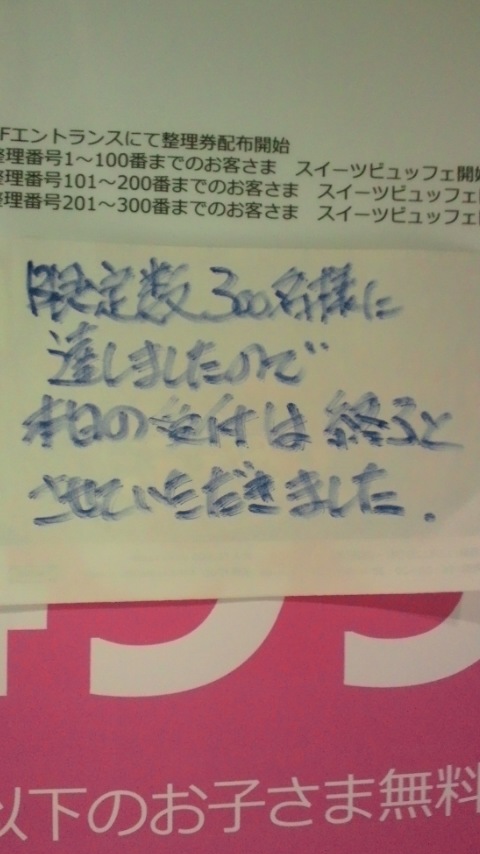 Fエントランスにて整理券配布開始
整理番号1～100番までのお客さま　スイーツビュッフェ開始
整理番号101～200番までのお客さま　スイーツビュッフェ
整理番号201～300番までのお客さま　スイーツビュッフェ
限定数300名様に
達しましたので
本日の受付は終了と
させていただきました.
以下のお子さま無料